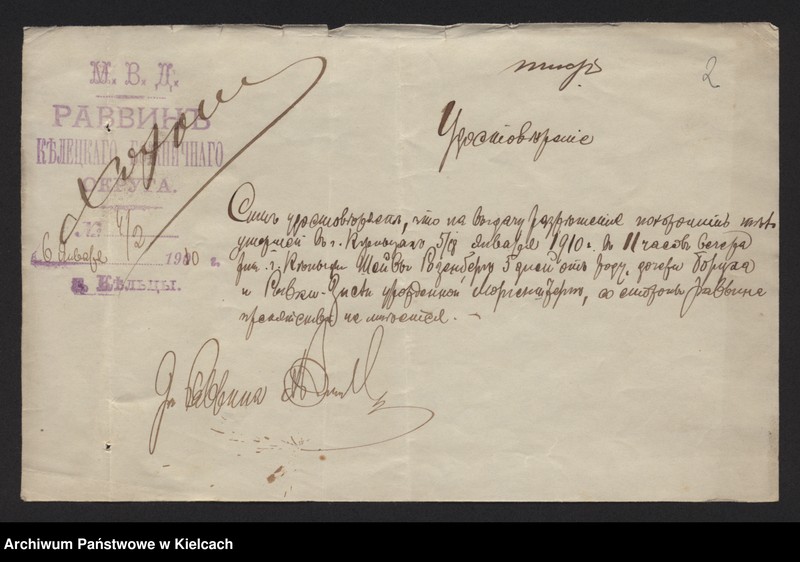 М. В. Д.
РАВВИНЪ
КѢЛЕЦКАГО
ОКРУГА.
6 Января 1910 г.
г. Кѣльцы.
2
Удостовѣреніе
Симъ удостовѣряю, что на выдачу разрѣшенія похоронить
умершей въ г. Кѣльцахъ 5/18 Января 1910 г. въ 11 часовъ вечера
Розенбергъ 5 дней отъ роду, дочери Боруха
и Ривки-Зисли урожденной Моргенштернъ, со стороны раввина
препятствія не имѣется. -
Раввина
Archiwum Państwowe w Kielcach